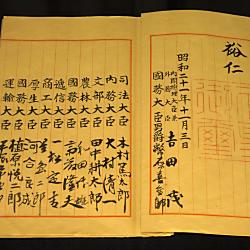 裕仁
昭和二十一年十一月三日
內閣總理大臣兼
外務大臣 吉田茂
國務大臣 男爵幣原喜重郎
司法大臣 木村篤太郎
內務大臣 大村清一
文部大臣 田中耕太郎
農林大臣 和田博雄
國務大臣 斎藤隆夫
遞信大臣 一松定吉
商工大臣 星島二郎
厚生大臣 河合良成
國務大臣 植原悦二郎
運輸大臣 平塚常次郎